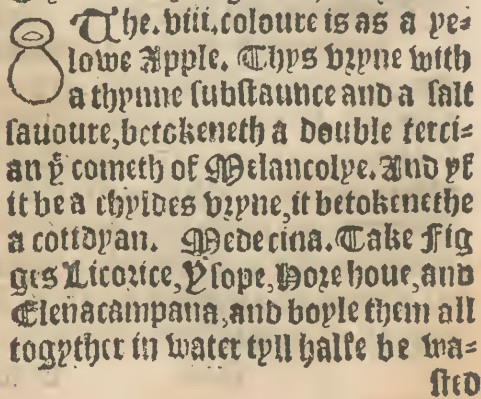 The.viii.coloure is as a ye=
lowe Apple. Thys vryne with
a thynne substaunce and a salt
sauoure,betokeneth a double terci=
an yͭ cometh of Melancolye. And yf
it be a chyldes vryne,it betokenethe
a cottdyan. Medecina. Take Fig
ges Licorice, Ysope, Hore houe, and
Elenacampana, and boyle them all
togyther in water tyll halfe be wa=
sted